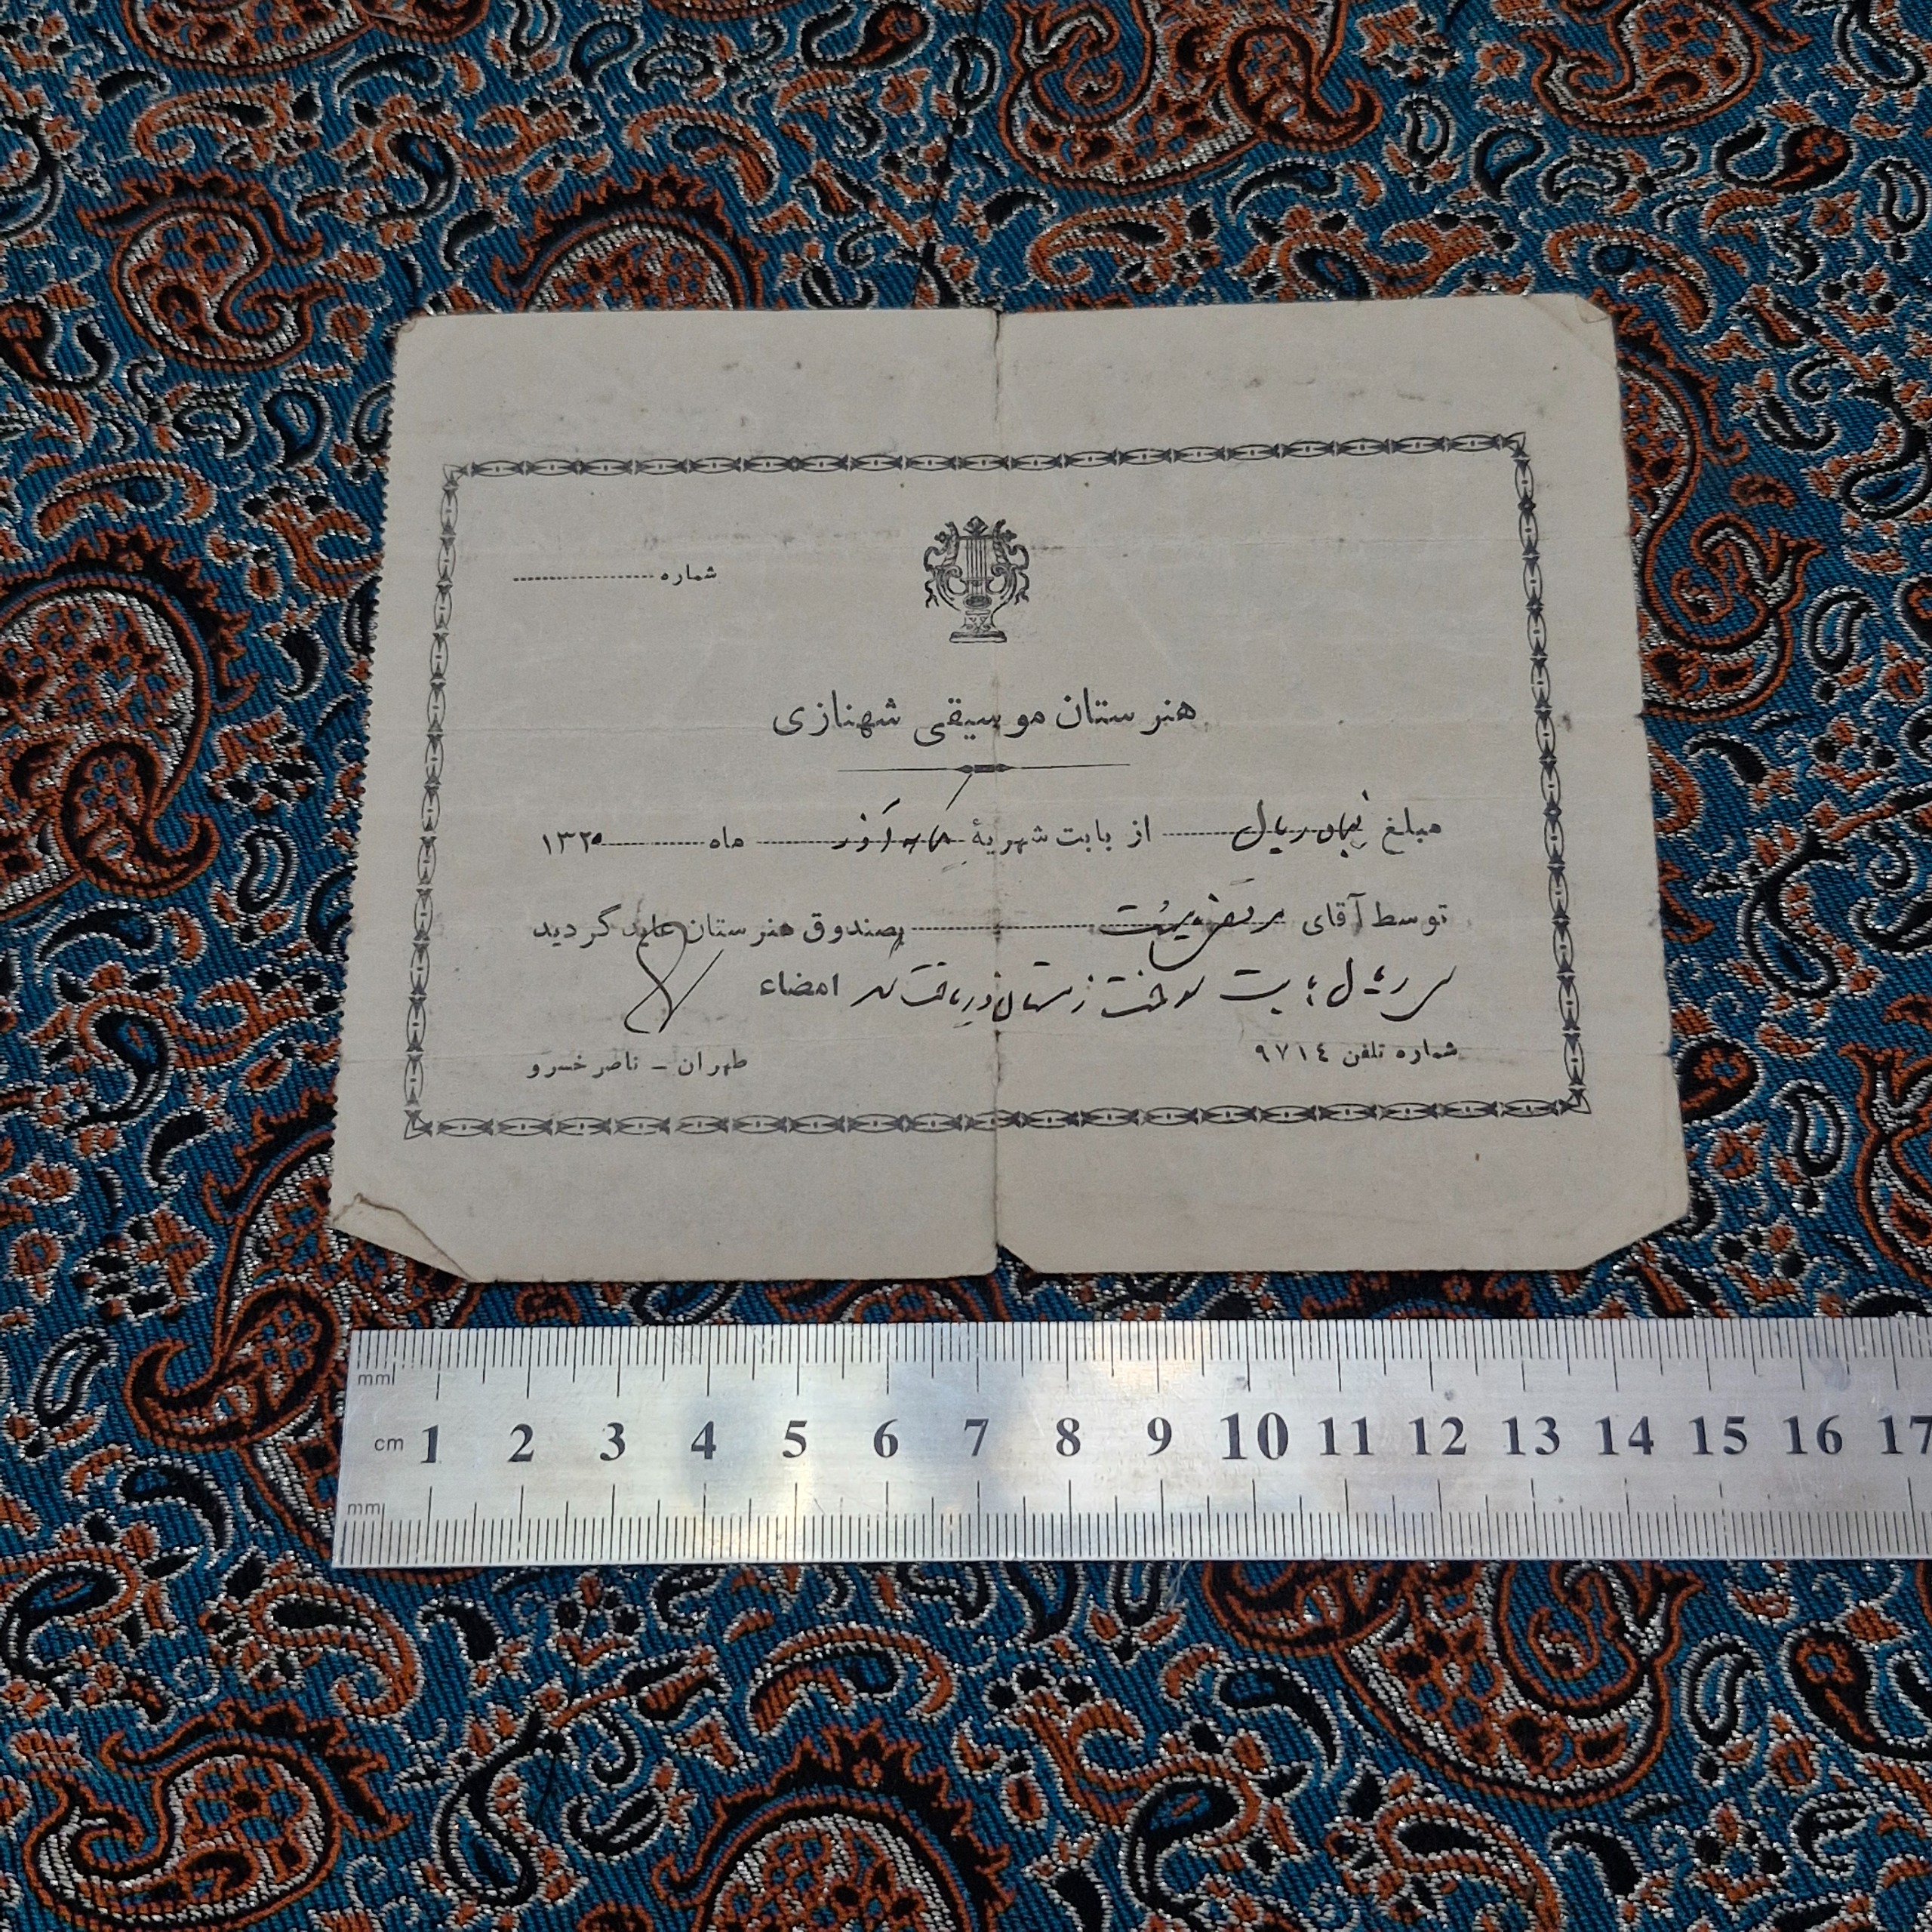 شماره
هنرستان موسیقی شهنازی
مبلغ ریال از بابت شهریهٔ آذر ماه ۱۳۲۵
توسط آقای بصندوق هنرستان عاید گردید
سی ریال بابت سوخت زمستان دریافت شد امضاء
شماره تلفن ۹۷۱٤
طهران - ناصر خسرو
mm
cm 1 2 3 4 5 6 7 8 9 10 11 12 13 14 15 16 17
mm